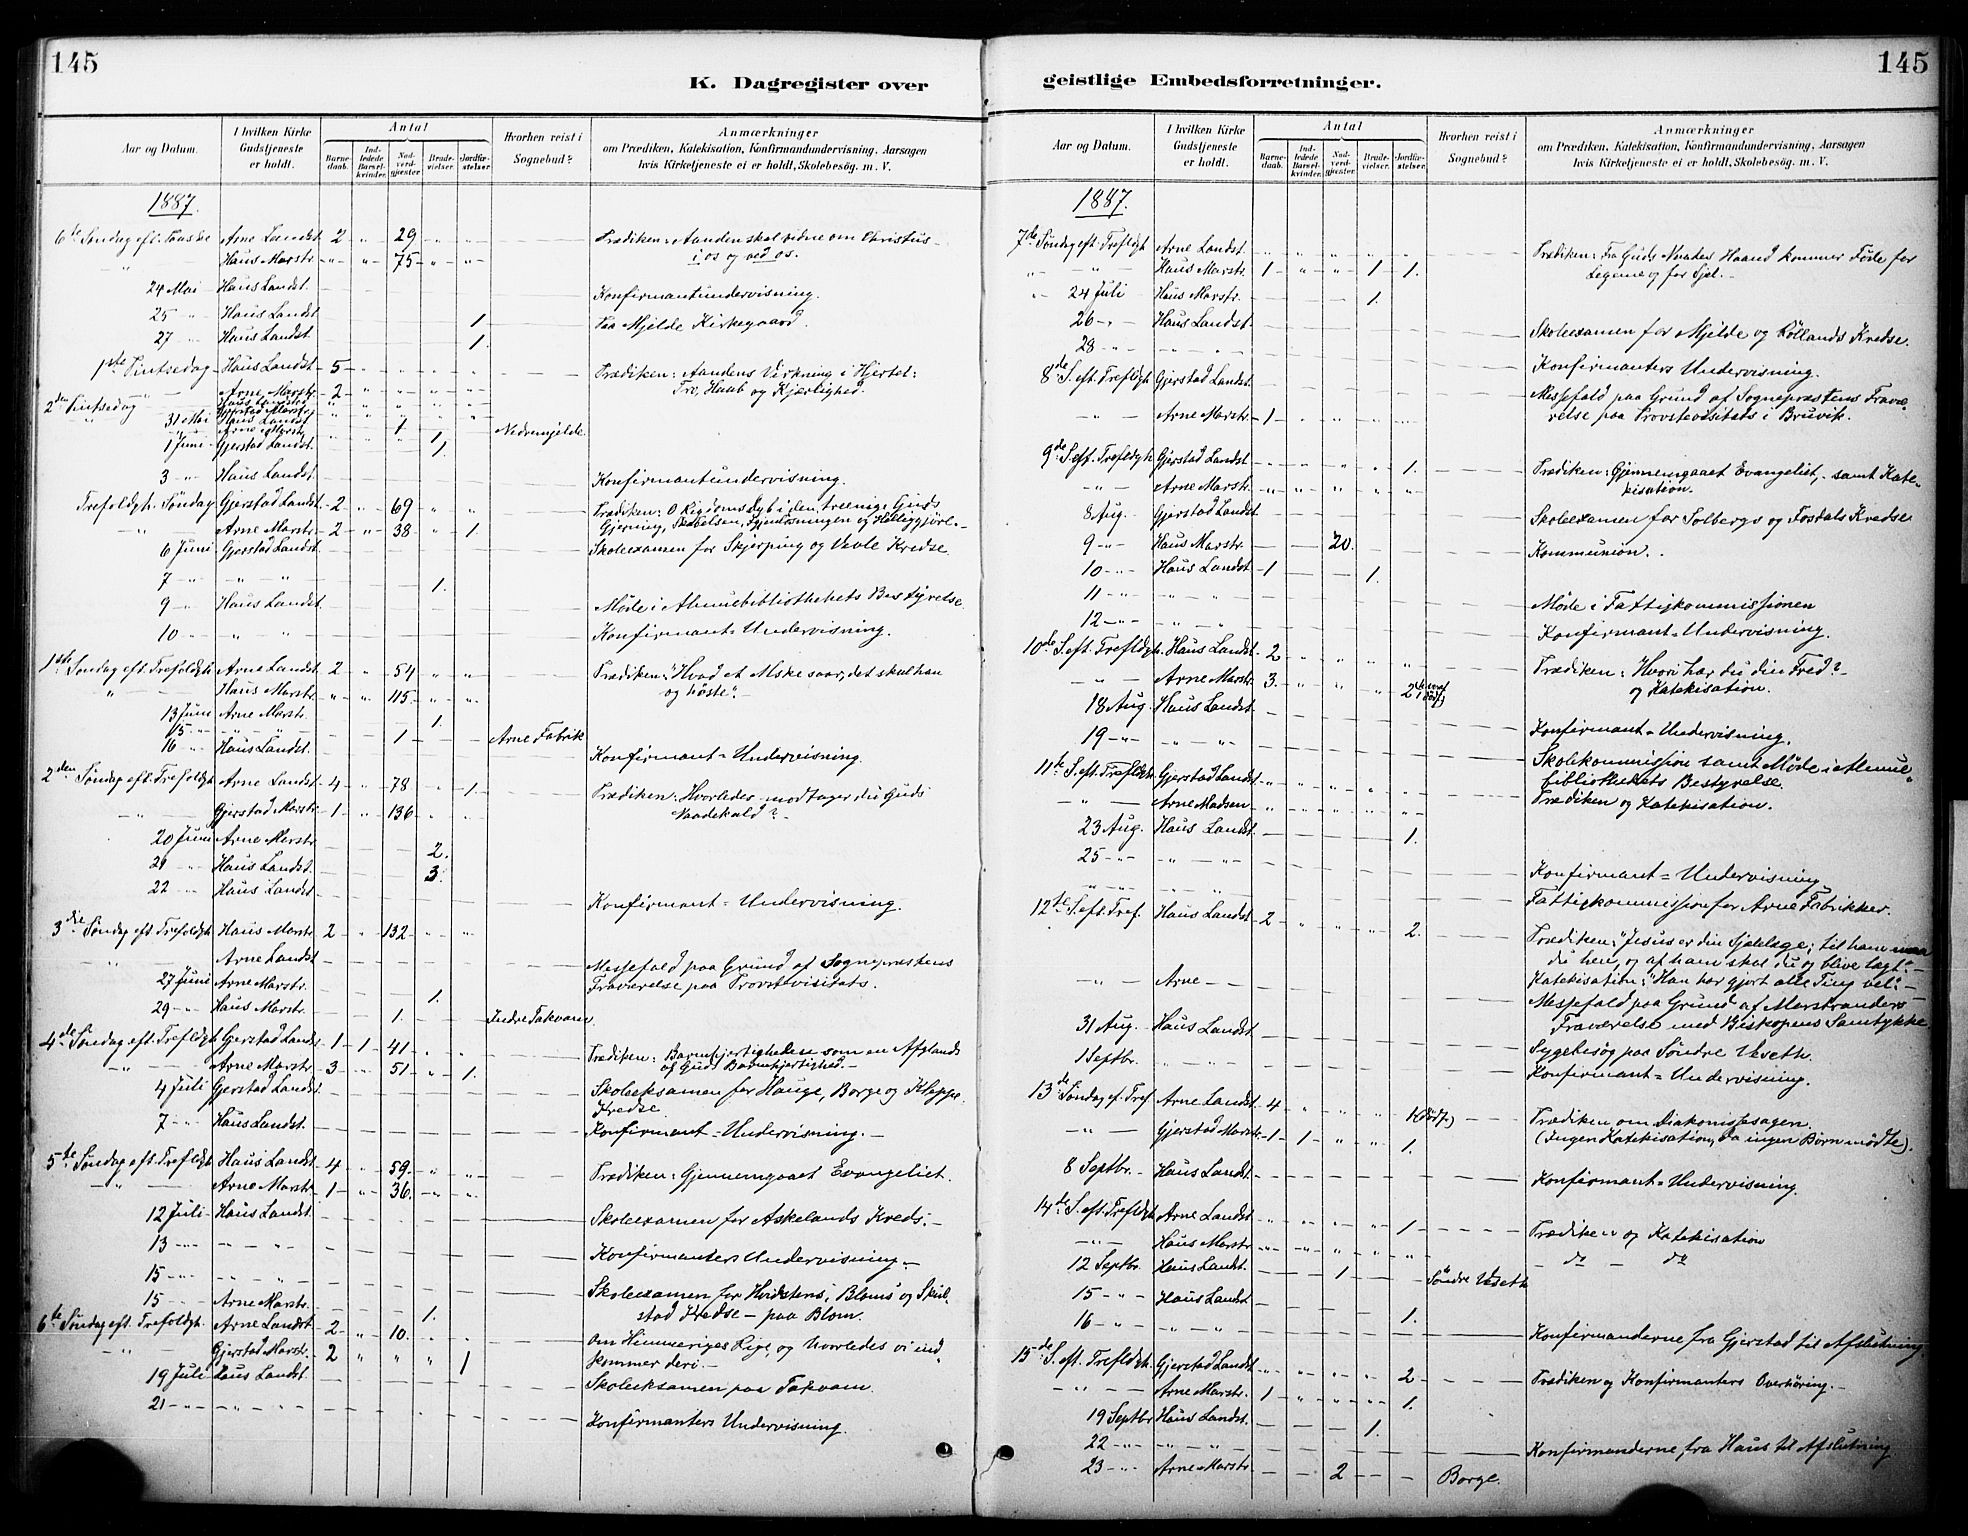 145
K. Dagregister over
Aar og Datum.
I hvilken Kirke Gudstjeneste er holdt.
Antal
Barnedaab.
Indledede Barselkvinder.
Nadverdgjæster.
Brudevielser.
Jordfæstelser.
Hvorhen reist i Sognebud?
Anmærkninger
om Prædiken, Katekisation, Konfirmandundervisning, Aarsagen
hvis Kirketjeneste ei er holdt, Skolebesög. m. V.
1887.
6te Søndag eft. Paaske Arne Landst. 2 " 29 " " Prædiken: Aanden skal vidne om Christus
" Haus Marstr. " " 75 " " i os og ved os.
24 Mai Haus Landst.
25 " Haus Landst. 1. Konfirmantundervisning.
27 " Haus Landst. 1. Paa Mjelde Kirkegaard.
1ste Pintsedag Haus Landst. 5 " " " " Prædiken: Aandens Virkning i Hjertet:
" Arne Marstr. 2 " " " " Tro, Haab og Kjerlighed.
2den Pintsedag Haus Landst.
" Gjerstad Marstr.
31 Mai Haus Landst.
" Arne Marstr. 1 Nedremjelde
1 Juni Gjerstad Landst. 1.
3 " Haus Landst. Konfirmantundervisning.
Trefoldgh. Søndag Gjerstad Landst. 2 " 69 " " Prædiken: O Rigdoms Dyb i den treenige Guds
" Arne Marstr. 2 " 38 " 1. Gjerning, Skabelsen, Gjenløsningen og Helliggjørl.
6 Juni Gjerstad Landst. Skoleexamen for Skjerping og Vevle Kredse
7 " " " 1.
9 " Haus Landst. Møde i Almuebibliothekets Bestyrelse.
10 " " " Konfirmant-Undervisning.
1ste Søndag eft. Trefoldgh. Arne Landst. 2 " 54 " " Prædiken: "Hvad et Mske saar, det skal han
" Haus Marstr. " " 115 " " og høste".
13 Juni Arne Marstr. 1.
15 " " " 1 Arne Fabrik
16 " Haus Landst. Konfirmant-Undervisning.
2den Søndag eft. Trefoldgh. Arne Landst. 4 " 78 " 1. Prædiken: Hvorledes modtager du Guds
" Gjerstad Marstr. 1 " 136 " " Naadekald?
20 Juni Arne Marstr. 2.
21 " Haus Landst. 3.
22 " Haus Landst. Konfirmant-Undervisning.
3die Søndag eft. Trefoldgh. Haus Marstr. 2 " 132 " "
" Arne Landst. Messefald paa Grund af Sognepræstens
27 Juni Arne Marstr. 1. Fraværelse paa Provstevisitats.
29 " Haus Marstr. 1. Indre Takvam.
4de Søndag eft. Trefldgh. Gjerstad Landst. 1 1 41 " " Prædiken: Barmhjertighedsse som en Afglands
" Arne Marstr. 3 " 51 " 1. af Guds Barmhjertighed.
4 Juli Gjerstad Landst. Skoleksamen for Hauge, Borge og Kleppe
Kredse.
7 " Haus Landst. Konfirmant-Undervisning.
5te Søndag eft. Trefldgh. Haus Landst. 4 " 59 " " Prædiken: Gjennemgaaet Evangeliet.
" Arne Marstr. 1 " 36 " "
12 Juli Haus Landst. Skoleexamen for Askelands Kreds.
13 " " " Konfirmanters Undervisning.
15 " " " Skoleexamen for Hvidstens, Bloms og
15 " Arne Marstr. 1. stad Kredse - paa Blom.
6te Søndag eft. Trefoldgh. Arne Landst. 2 " 10 " " Om Himmeriges Rige, og hvorledes vi ind-
" Gjerstad Marstr. 2 " " " 1 kommer deri.
19 Juli Haus Landst. Skoleeksamen paa Takvam.
21 " " " Konfirmanters Undervisning.
geistlige Embedsforretninger.
145
Aar og Datum.
I hvilken Kirke Gudstjeneste er holdt.
Antal
Barnedaab.
Indledede Barselkvinder.
Nadverdgjæster.
Brudevielser.
Jordfæstelser.
Hvorhen reist i Sognebud?
Anmærkninger
om Prædiken, Katekisation, Konfirmandundervisning, Aarsagen
hvis Kirketjeneste ei er holdt, Skolebesög. m. V.
1887.
7de Søndag eft. Trefldgh. Arne Landst. Prædiken: Fra Guds Haand kommer Føde for
" Haus Marstr. 1 " " 1 1. Legeme og for Sjel.
" 24 Juli Haus Marstr. 1.
26 " Haus Landst. Skoleexamen for Mjelde og Röllands Kredse.
28 " " " Konfirmanters Undervisning.
8de S. eft. Trefldgh. Gjerstad Landst. Messefald paa Grund af Sognepræstens Fravæ-
" Arne Marstr. 1 " " " " relse paa Provstevisitats i Bruvik.
9de S. eft. Trefldgh. Gjerstad Landst. " " " " 1. Prædiken: Gjennemgaaet Evangeliet, samt Kate-
" Arne Marstr. " " " " " kisation.
8 Aug. Gjerstad Landst. Skoleexamen for Solbergs og Fosdals Kredse
9 " Haus Marstr. 20. Kommunion.
10 " Haus Landst. 1 1.
11 " " " Møde i Fattigkommissionen
12 " " " Konfirmant-Undervisning.
10de S. eft. Trefldgh. Haus Landst. 2 " " " " Prædiken: Hvori har du din Fred?
" Arne Marstr. 3. " " " 2 og Katekisation.
18 Aug. Haus Landst. Konfirmant-Undervisning.
19 " " " Skolekommission samt Møde i Almue-
bibliothekets Bestyrelse.
11te S. eft. Trefldgh. Gjerstad Landst. Prædiken og Katekisation.
" Arne Madsen
23 Aug. Haus Landst. 1.
25 " " " Konfirmant-Undervisning
" " " Fattigkommission for Arne Fabrikker.
12te S. eft. Tref. Haus Landst. 2 " " " 2. Prædiken: "Jesus er din Sjælelæge; til ham maa
du hen, og af ham skal du og blive lægt".
" Arne Katekisation: "Han har gjort alle Ting vel".
Messefald paa Grund af Marstranders
Fraværelse med Biskopens Samtykke
31 Aug. Haus Landst. Sygebesøg paa Søndre Veseth.
1 Septbr. " " Konfirmant-Undervisning.
13de Søndag ef. Tref. Arne Landst. 4 " " " 1 (dødf.) Prædiken om Diakonissesagen.
" Gjerstad Marstr. 1 1 " " 1. (Ingen Katekisation, da ingen Børn mødte).
8 Septbr. Haus Landst. Konfirmant-Undervisning.
14de S. eft. Trefldgh. Arne Landst. " " " " 1 Prædiken og Katekisation
" Haus Marstr. " " " " " do do
12 Septbr. Haus Landst. 1 Söndre Veseth
15 " Haus Landst. 1.
16 " " " Konfirmanderne fra Gjerstad til Afslutning
15de S. eft. Trefldgh. Gjerstad Landst. " " " " 2 Prædiken og Konfirmanters Overhöring.
" Arne Marstr. 1 " " " 1.
19 Septbr. Haus Landst. 1.
22 " " " Konfirmanderne fra Haus til Afslutning
23 " Arne Marstr. 2 Borge.